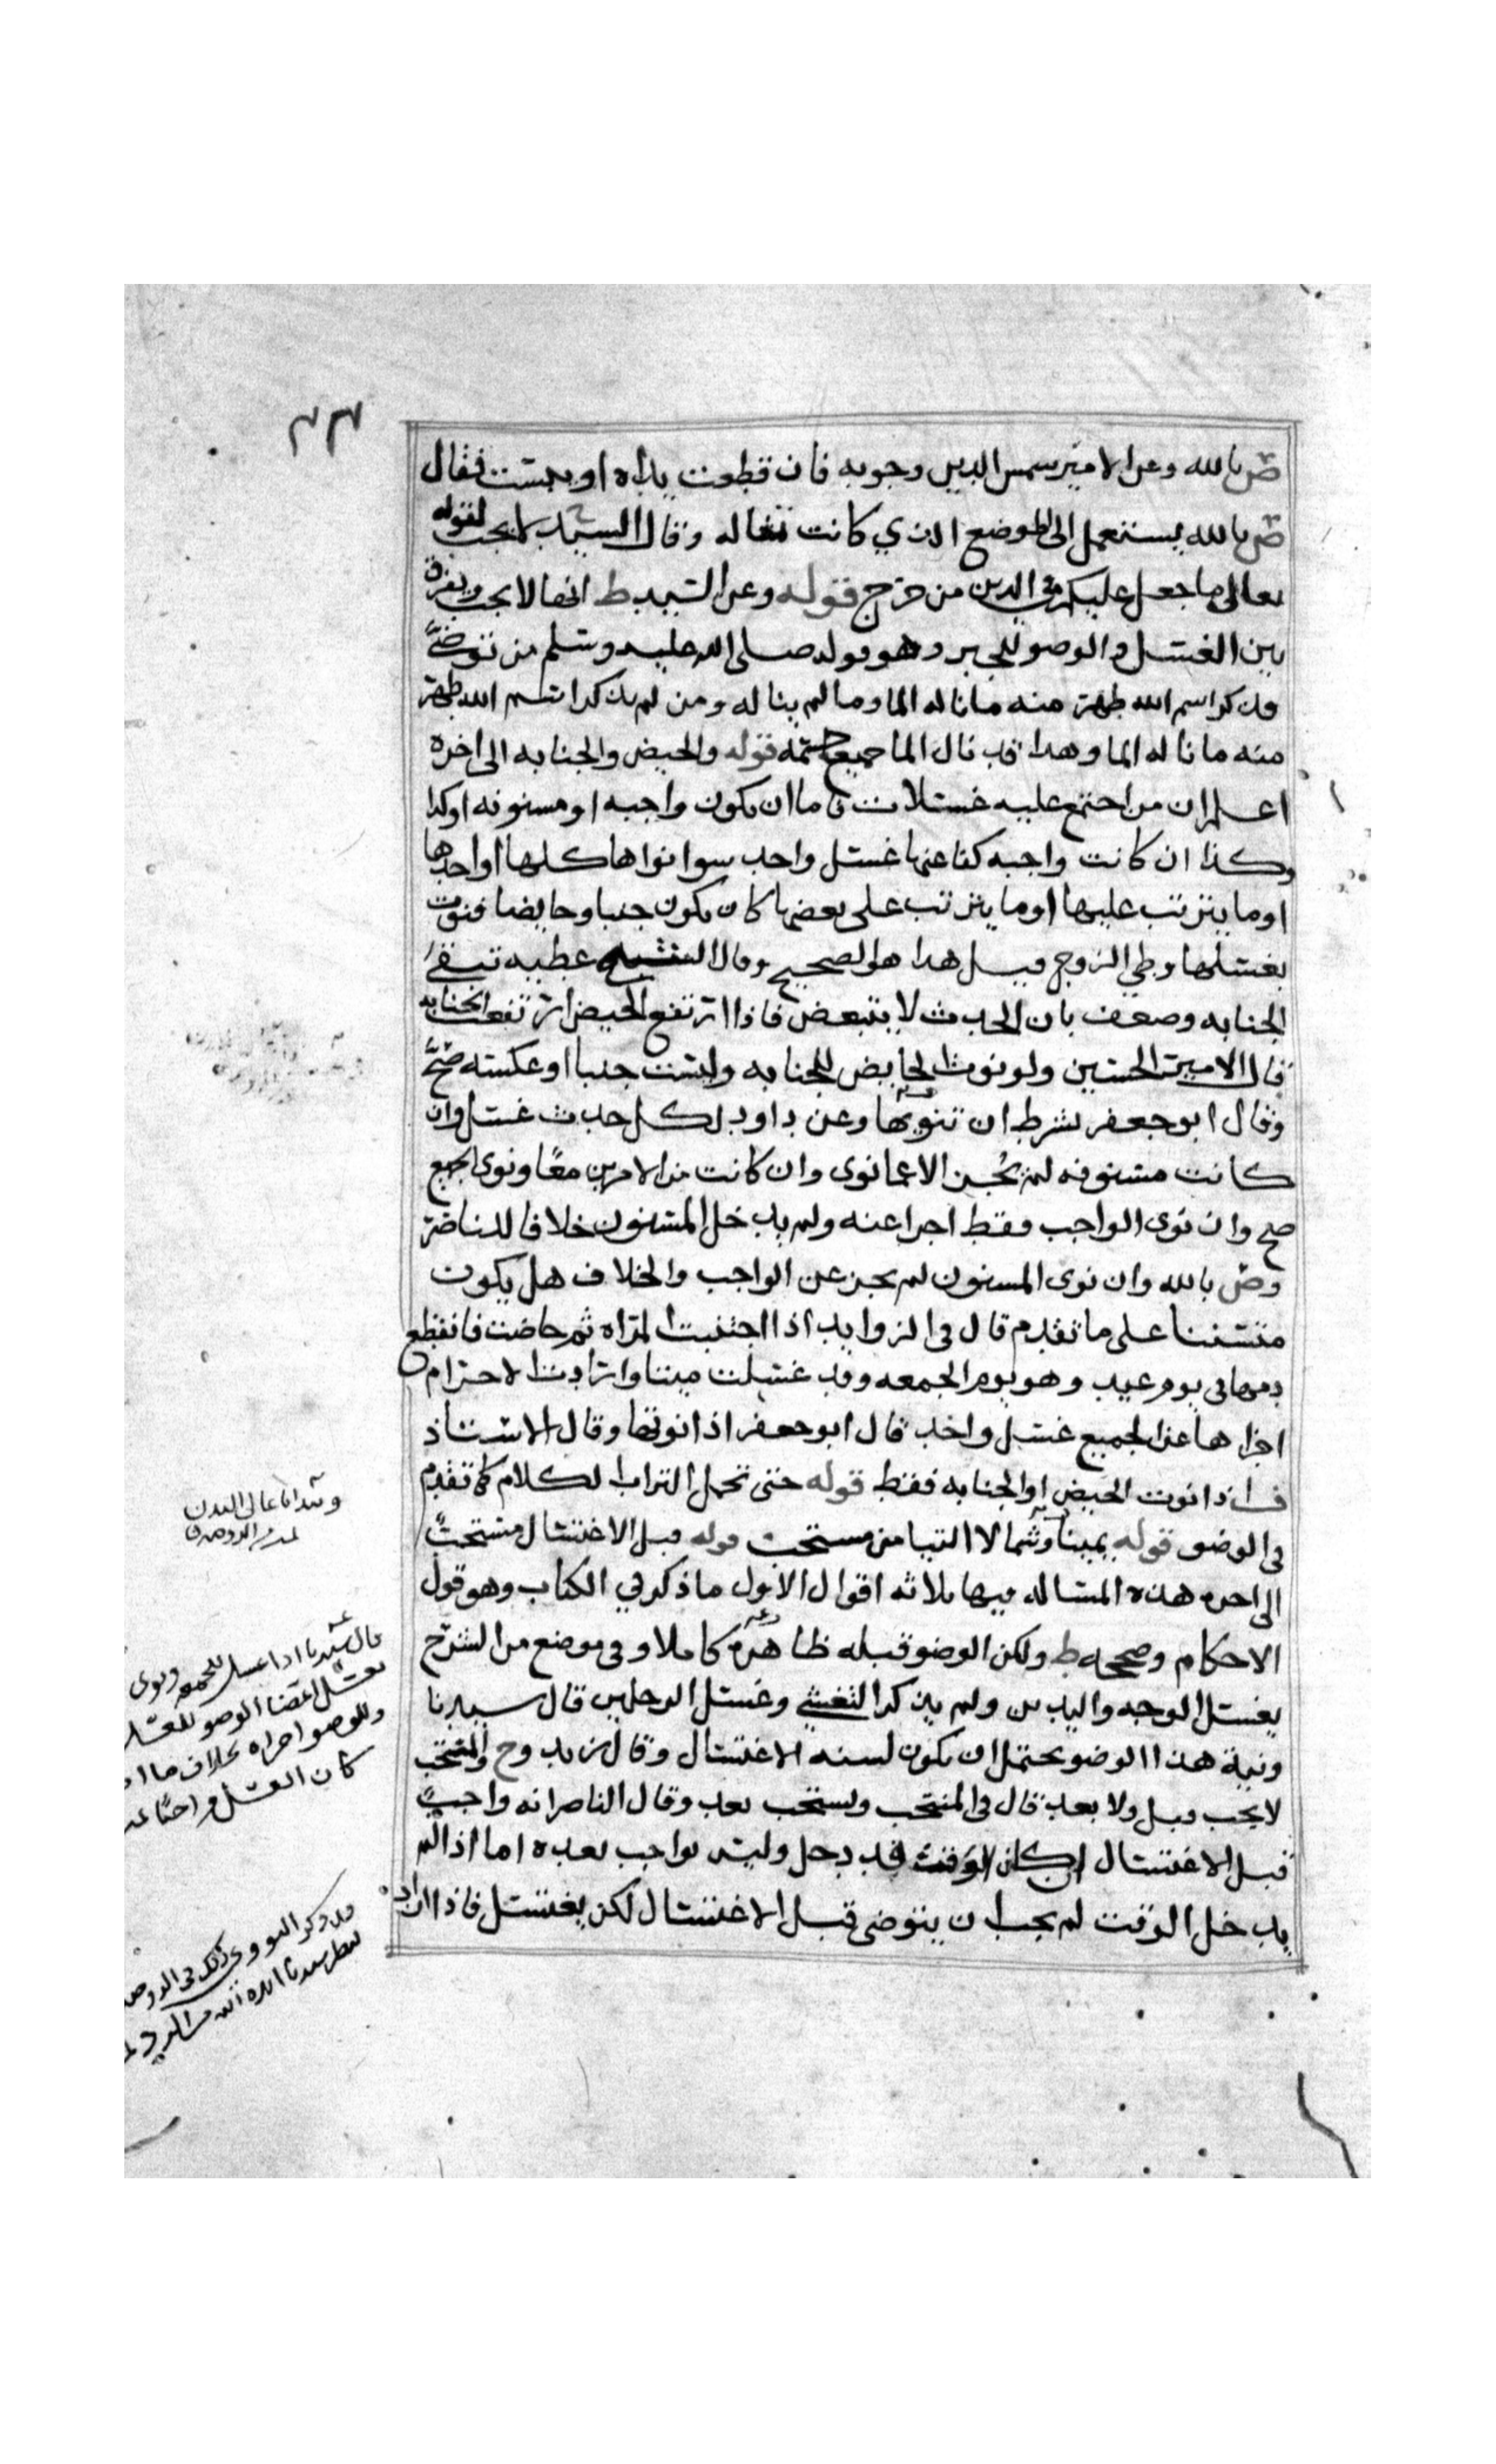 ٢٣
ص بالله وعن الامير شمس الدين وجوبه فان قطعت يداه او يبست فقال
ص بالله يستعمل الى الموضع الذي كانت تناله وقال السيد لا يجب لقوله
تعالى ما جعل عليكم في الدين من حرج قوله وعن السيد ط انها لا يجب ويفرق
بين الغسل والوضو للخبر وهو قوله صلى الله عليه وسلم من توضى
فذكر اسم الله طهر منه ما ناله الما وما لم يناله ومن لم يذكر اسم الله طهر
منه ما ناله الما وهذا قد نال الما جميع جسمه قوله والحيض والجنابه الى اخره
اعلم ان من اجتمع عليه غسلات فاما ان يكون واجبه او مسنونه او كذا
وكذا ان كانت واجبه كفا عنها غسل واحد سوا نواها كلها او احدها
او ما يترتب عليها او ما يترتب على بعضها كان يكون جنبا وحايضا فنوت
بغسلها وطي الزوج قيل هذا هو الصحيح وقال الشيخ عطيه تبقى
الجنابه وضعف بان الحدث لا يتبعض فاذا ارتفع الحيض ارتفعت الجنابه
قال الامير الحسين ولو نوت الحايض للجنابه وليست جنبا او عكسته صح
وقال ابو جعفر بشرط ان تنويها وعن داود لكل حدث غسل وان
كانت مسنونه لم يجز الا عما نوى وان كانت من الامرين معا ونوى الجميع
صح وان نوى الواجب فقط اجزا عنه ولم يدخل المسنون خلافا للناصر
وص بالله وان نوى المسنون لم يجز عن الواجب والخلاف هل يكون
متسننا على ما تقدم قال في الزوايد اذا اجنبت المراه ثم حاضت فانقطع
دمها في يوم عيد وهو يوم الجمعه وقد غسلت ميتا وارادت الاحرام
اجزاها عن الجميع غسل واحد قال ابو جعفر اذا نوتها وقال الاستاذ
فاذا نوت الحيض او الجنابه فقط قوله حتى تحمل التراب الكلام كما تقدم
في الوضو قوله يمينا وشمالا التيامن مستحب قوله قبل الاغتسال مستحب
الى اخره هذه المساله فيها ثلاثه اقوال الاول ما ذكر في الكتاب وهو قول
الاحكام وصححه ط ولكن الوضو قبله ظاهره كاملا وفي موضع من الشرح
يغسل الوجه واليدين ولم يذكر التغشي وغسل الرجلين قال سيدنا
ونية هذا الوضو يحتمل ان يكون لسنه الاغتسال وقال زيد وح والمنتخب
لا يجب قبل ولا بعد قال في المنتخب ويستحب بعد وقال الناصر انه واجب
قبل الاغتسال ان كان الوقت قد دخل وليس بواجب بعده اما اذا لم
يدخل الوقت لم يجب ان يتوضى قبل الاغتسال لكن يغتسل فاذا اراد
قال سيدنا اذا غسل للجمعه ونوى
بغسل اعضا الوضو للغسل
وللوضو اجزاه بخلاف ما
كان الغسل واجبا
وقد ذكر النووي ذلك في الروضه